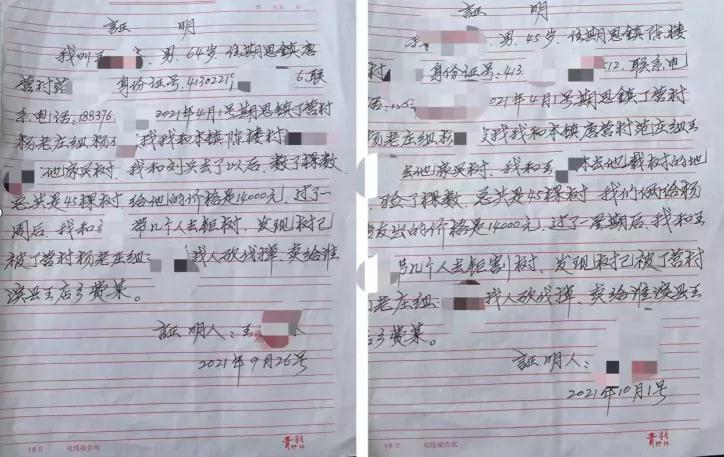 証 明
我叫王 男. 64岁. 住期思镇唐
营村范 身份证号: 4130221 6. 联
系电话: 188376 2021年4月1号期思镇丁营村
杨老庄组杨 找我和本镇陈楼村
他家买树. 我和刘 去了以后, 数了棵数
总共是45棵树. 给他的价格是14000元. 过了一
周后. 我和 带几个人去锯树. 发现树已
被丁营村杨老庄组 找人砍伐掉. 卖给淮
滨县王店乡费某。
証明人: 王
2021年9月26号
16开 双线报告纸
証 明
男. 45岁. 住期思镇陈楼
村 身份证号: 413 512. 联系电
话: 021年4月1号期思镇丁营村
杨老庄组杨 找我和本镇唐营村范庄组王
去他家买树. 我和王 去他栽树的地
验了棵数. 总共是45棵树. 我们俩给杨
发出的价格是14000元. 过了一星期后. 我和王
带几个人去锯割树. 发现树已被丁营村
老庄组 找人砍伐掉. 卖给淮滨县王
乡费某。
証明人:
2021年10月1号
16开 双线报告纸